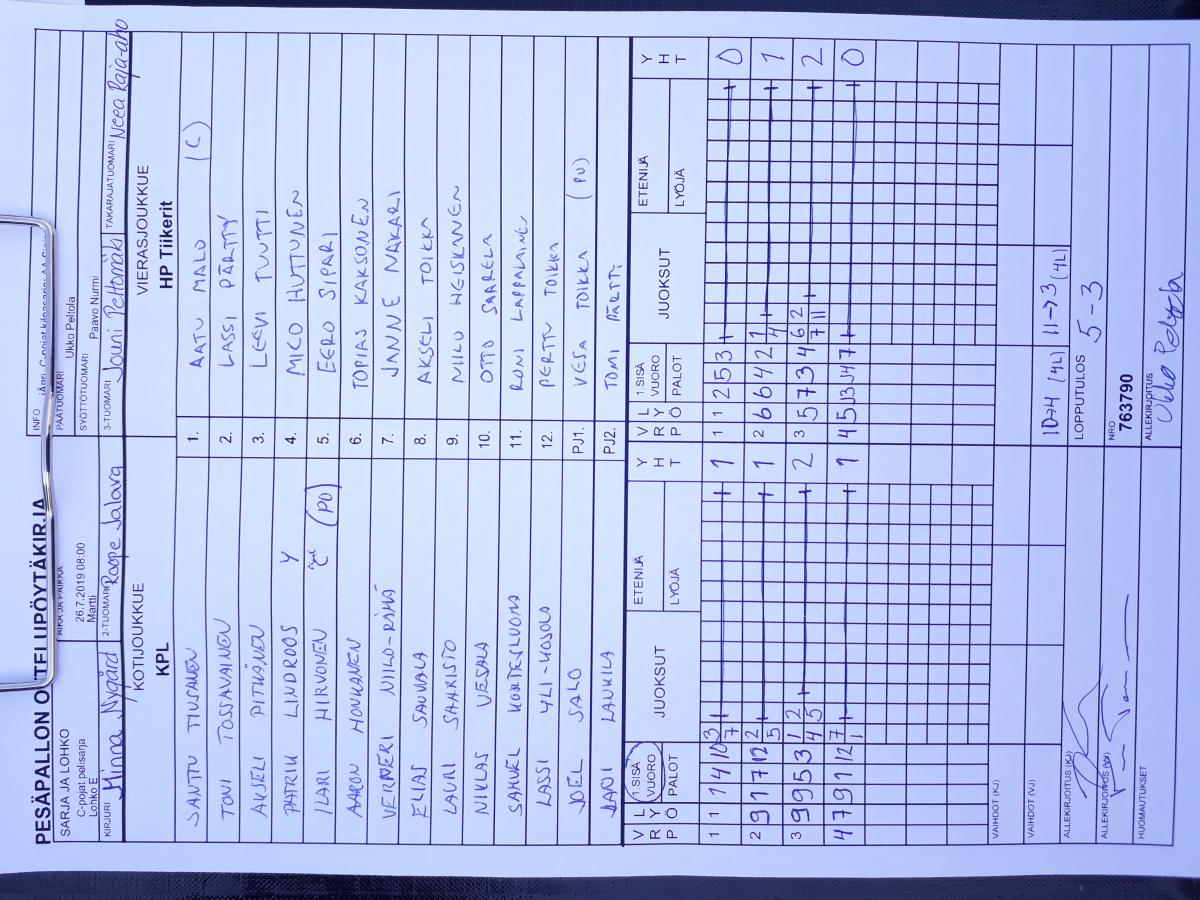 PESÄPALLON OTTELUPÖYTÄKIRJA
SARJA JA LOHKO
C-pojat pelisarja
Lohko E
AIKA JA PAIKKA
26.7.2019 08:00
Martti
INFO
PÄÄTUOMARI
Ukko Peltola
SYÖTTÖTUOMARI
Paavo Nurmi
KIRJURI Minna Nygård
2-TUOMARI Roope Jalava
3-TUOMARI Jouni Peltomäki
TAKARAJATUOMARI Neea Raja-aho
KOTIJOUKKUE
KPL
VIERASJOUKKUE
HP Tiikerit
SANTTU TIUSANEN 1. AATU MALO (C)
TONI TOSSAVAINEN 2. LASSI PÄRTTY
AKSELI PITKÄNEN 3. LEEVI TUUTTI
PATRIK LINDROOS Y 4. MICO HUTTUNEN
ILARI HIRVONEN (PO) 5. EERO SIPARI
AARON HONKANEN 6. TOPIAS KAKSONEN
VERNERI NIILO-RÄMÄ 7. JANNE NÄKÄRI
ELIAS SAUVALA 8. AKSELI TOIKKA
LAURI SAARISTO 9. NIILO HEISKANEN
NIKLAS VESALA 10. OTTO SAARELA
SAMUEL KORTESLUOMA 11. RONI LAPPALAINEN
LASSI YLI-HOSOLA 12. PERTTU TOIKKA
JOEL SALO PJ1. VESA TOIKKA (PU)
JANI LANKILA PJ2. TOMI PÄRTTI
VRP LYÖ 1.SISÄ VUORO PALOT JUOKSUT ETENIJÄ LYÖJÄ YHT VRP LYÖ 1.SISÄ VUORO PALOT JUOKSUT ETENIJÄ LYÖJÄ YHT
1 1 1 4 10 3 7 1 1 1 2 5 3 0
2 9 1 7 12 2 5 1 2 6 6 4 2 1 4 1
3 9 9 5 3 1 2 4 5 2 3 5 7 3 4 6 2 7 11 2
4 7 9 1 12 7 1 1 4 5 7 0
VAIHDOT (KJ)
VAIHDOT (VJ)
10→4 (4L) 11→3 (4L)
ALLEKIRJOITUS (KJ)
LOPPUTULOS 5-3
NRO
763790
HUOMAUTUKSET
ALLEKIRJOITUS
Ukko Peltola